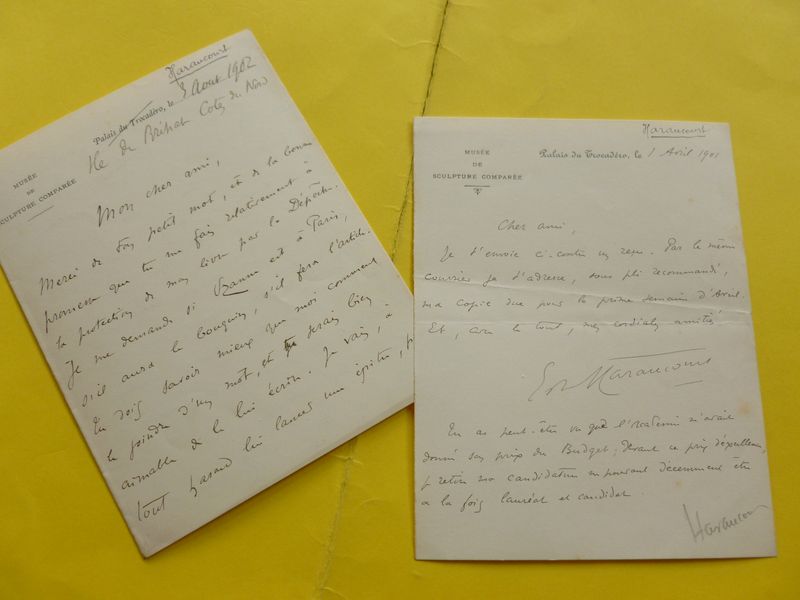 Harancourt
MUSÉE
DE
SCULPTURE COMPARÉE
Palais du Trocadéro, le 8 Août 1902
Ile de Bréhat Côtes du Nord
Mon cher ami,
Merci de ton petit mot, et de la bonne
promesse que tu me fais relativement à
la protection de mon livre par la Dépêche.
Je me demande si est à Paris,
s'il aura le bouquin, s'il fera l'article.
Tu dois savoir mieux que moi comment
le joindre d'un mot, et tu serais bien
aimable de le lui écrire. Je vais, à
tout hasard lui lancer une épître,
Haraucourt
MUSÉE
DE
SCULPTURE COMPARÉE
Palais du Trocadéro, le 1 Avril 1901
Cher ami,
Je t'envoie ci-contre un reçu. Par le même
courrier je t'adresse, sous pli recommandé,
ma copie due pour la prime semaine d'Avril.
Et, avec le tout, mes cordiales amitiés
Edm Haraucourt
Tu as peut-être vu que l'Académie m'avait
donné son prix du Budget; devant ce prix d'excellence,
je retire ma candidature ne pouvant décemment être
à la fois lauréat et candidat.
Haraucourt